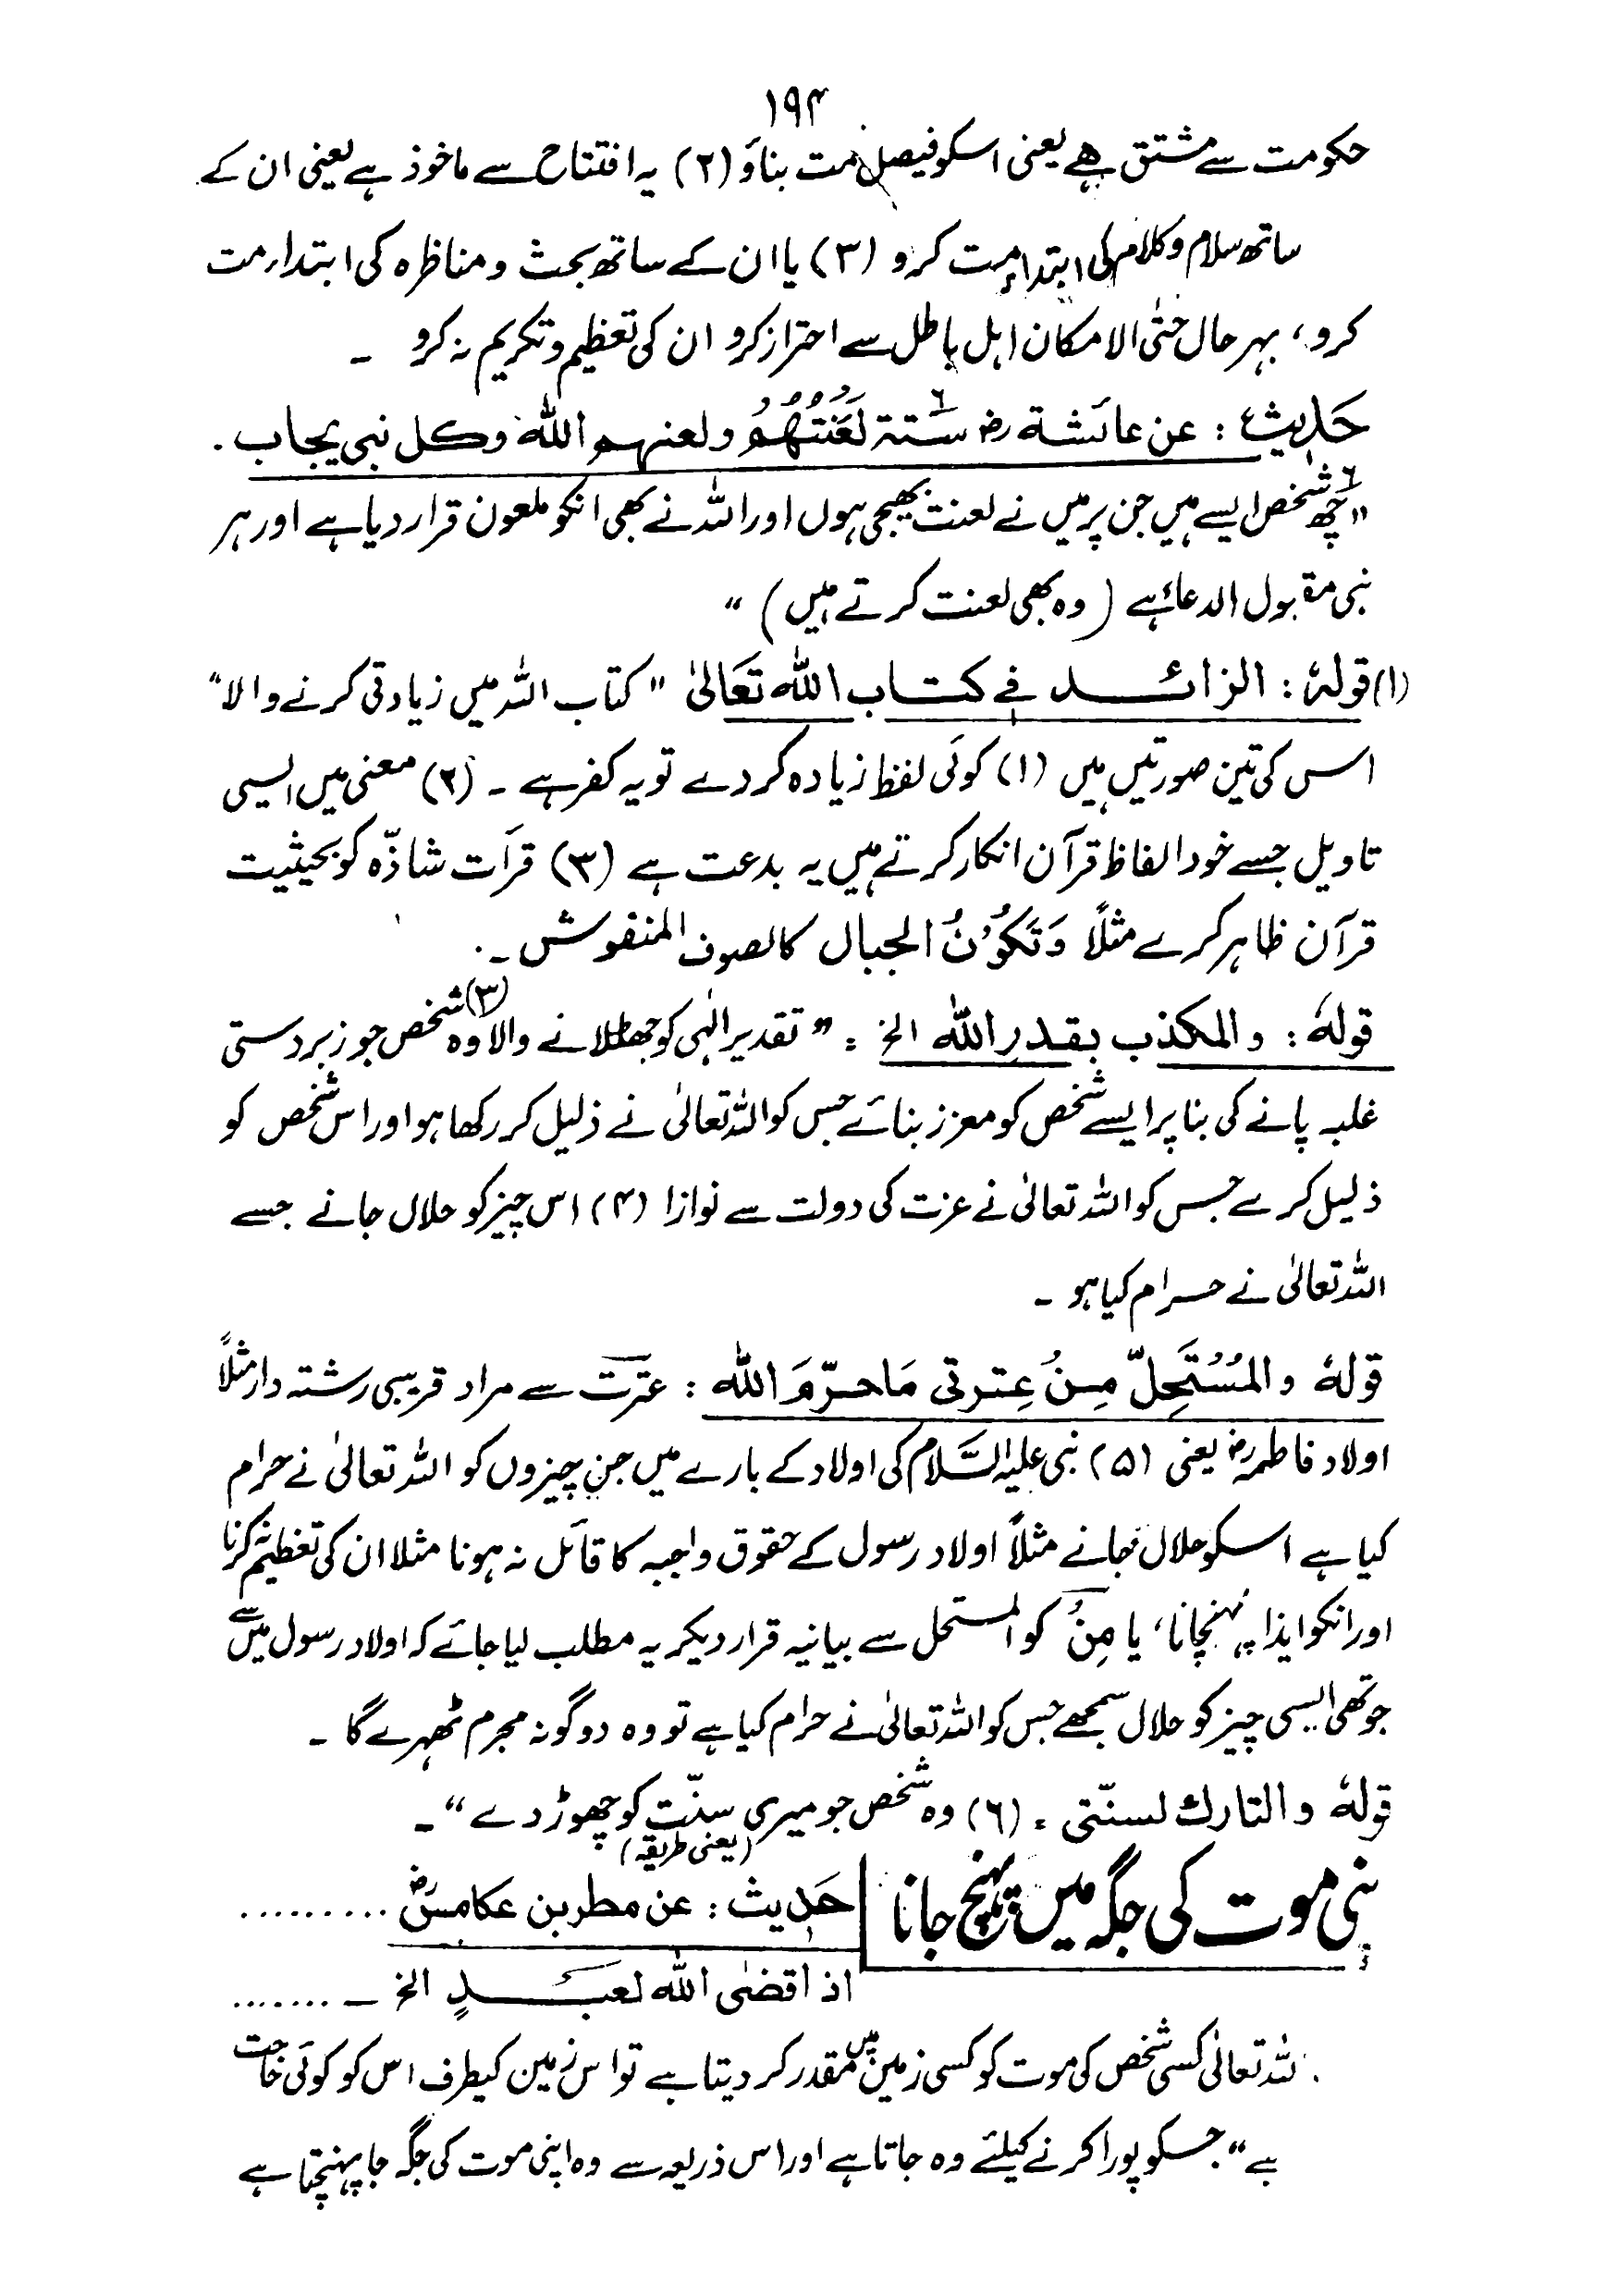 ۱۹۴
حکومت سے مشتق ہے یعنی اسکو فیصل مت بناؤ (۲) یہ افتتاح سے ماخوذ ہے یعنی ان کے
ساتھ سلام و کلام کی ابتداء مت کرو (۳) یا ان کے ساتھ بحث و مناظرہ کی ابتداء مت
کرو، بہر حال حتیٰ الامکان اہل باطل سے احتراز کرو ان کی تعظیم و تکریم نہ کرو ۔
حَدِیث : عن عائشة رض ستة لَعَنْتُهُمْ ولعنهم الله وكل نبي يجاب .
" چھ شخص ایسے ہیں جن پر میں نے لعنت بھیجی ہوں اور اللہ نے بھی انکو ملعون قرار دیا ہے اور ہر
نبی مقبول الدعاء ہے (وہ بھی لعنت کرتے ہیں) "
(۱) قولہٗ : الزائد فی کتاب اللہ تَعَالیٰ " کتاب اللہ میں زیادتی کرنے والا "
اس کی تین صورتیں ہیں (۱) کوئی لفظ زیادہ کر دے تو یہ کفر ہے ۔ (۲) معنی میں ایسی
تاویل جسے خود الفاظ قرآن انکار کرتے ہیں یہ بدعت ہے (۳) قرآت شاذّہ کو بحیثیت
قرآن ظاہر کرے مثلاً وَتَكُوْنُ الجبال كالصوف المنفوش ۔
قولہٗ : والمكذب بقدر الله الخ : " تقدیر الٰہی کو جھٹلانے والا (۳) وہ شخص جو زبردستی
غلبہ پانے کی بنا پر ایسے شخص کو معزز بنائے جس کو اللہ تعالیٰ نے ذلیل کر رکھا ہو اور اس شخص کو
ذلیل کرے جس کو اللہ تعالیٰ نے عزت کی دولت سے نوازا (۴) اس چیز کو حلال جانے جسے
اللہ تعالیٰ نے حرام کیا ہو ۔
قولہٗ والمُسْتَحِلّ مِنْ عِترتی مَا حرّمَ الله : عترت سے مراد قریبی رشتہ دار مثلاً
اولاد فاطمہ رض یعنی (۵) نبی علیہ السَّلام کی اولاد کے بارے میں جن چیزوں کو اللہ تعالیٰ نے حرام
کیا ہے اسکو حلال جانے مثلاً اولاد رسول کے حقوق واجبہ کا قائل نہ ہونا مثلا ان کی تعظیم نہ کرنا
اور انکو ایذا پہنچانا، یا مِنْ کو المستحل سے بیانیہ قرار دیکر یہ مطلب لیا جائے کہ اولاد رسول میں سے
جو بھی ایسی چیز کو حلال سمجھے جس کو اللہ تعالیٰ نے حرام کیا ہے تو وہ دوگونہ مجرم ٹھہرے گا ۔
قولہٗ والتارك لسنّتی : (۶) وہ شخص جو میری سنّت کو چھوڑ دے " ۔
(یعنی طریقہ)
موت کی جگہ میں پہنچ جانا
حَدِیث : عن مطر بن عکامس رض .........
اذا قضی اللہ لعبدٍ الخ ۔ .......
للہ تعالیٰ کسی شخص کی موت کو کسی زمین میں مقدر کر دیتا ہے تو اس زمین کیطرف اس کو کوئی حاجت
ہے " جسکو پورا کرنے کیلئے وہ جاتا ہے اور اس ذریعہ سے وہ اپنی موت کی جگہ جا پہنچتا ہے